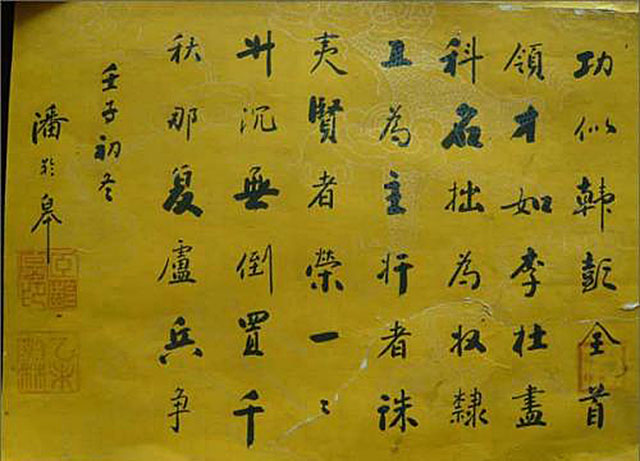 功似韓彭全首
領才如李杜盡
科名拙為奴隸
丑為主奸者誅
夷賢者榮一〻
升沉無倒置千
秋那復慮兵爭
壬子初冬
潘齡皋
乙未翰林